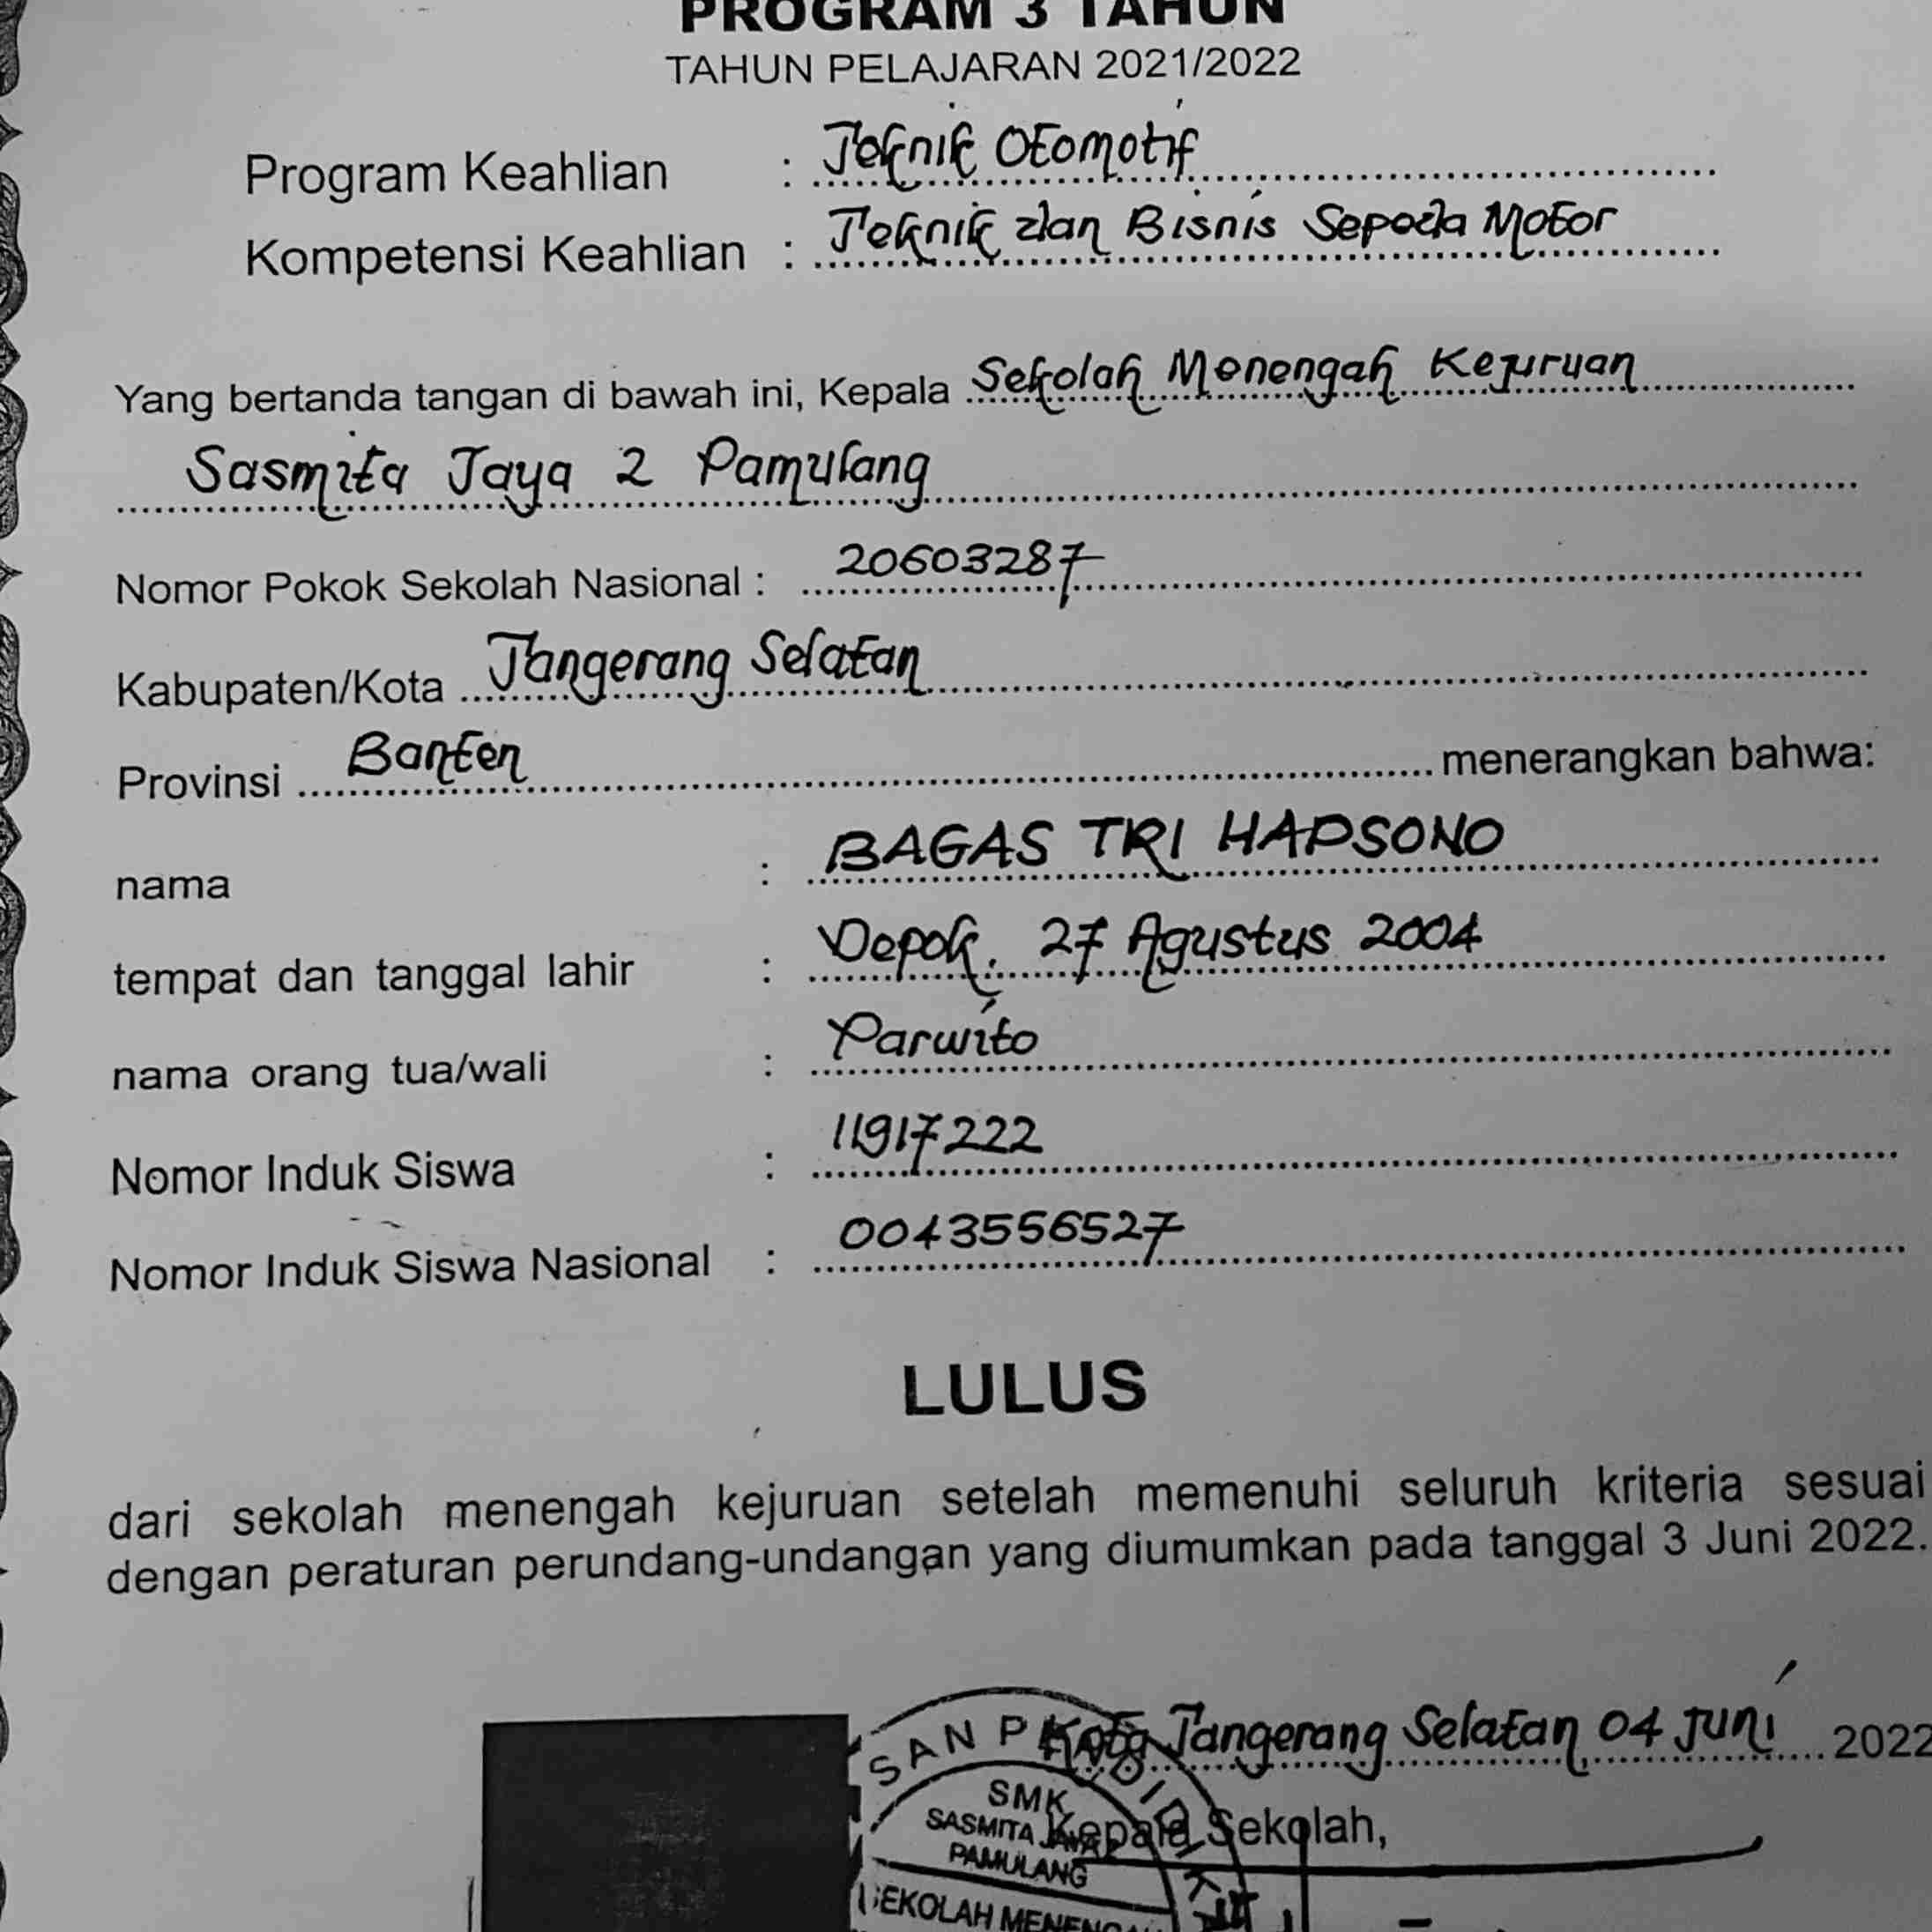 PROGRAM 3 TAHUN
TAHUN PELAJARAN 2021/2022
Program Keahlian : Teknik Otomotif
Kompetensi Keahlian : Teknik dan Bisnis Sepeda Motor
Yang bertanda tangan di bawah ini, Kepala Sekolah Menengah Kejuruan
Sasmita Jaya 2 Pamulang
Nomor Pokok Sekolah Nasional : 20603287
Kabupaten/Kota Tangerang Selatan
Provinsi Banten menerangkan bahwa:
nama : BAGAS TRI HAPSONO
tempat dan tanggal lahir : Depok, 27 Agustus 2004
nama orang tua/wali : Parwito
Nomor Induk Siswa : 11917222
Nomor Induk Siswa Nasional : 0043556527
LULUS
dari sekolah menengah kejuruan setelah memenuhi seluruh kriteria sesuai
dengan peraturan perundang-undangan yang diumumkan pada tanggal 3 Juni 2022.
Kota Tangerang Selatan, 04 Juni 2022
Kepala Sekolah,
SMK
SASMITA JAYA 2
PAMULANG
SEKOLAH